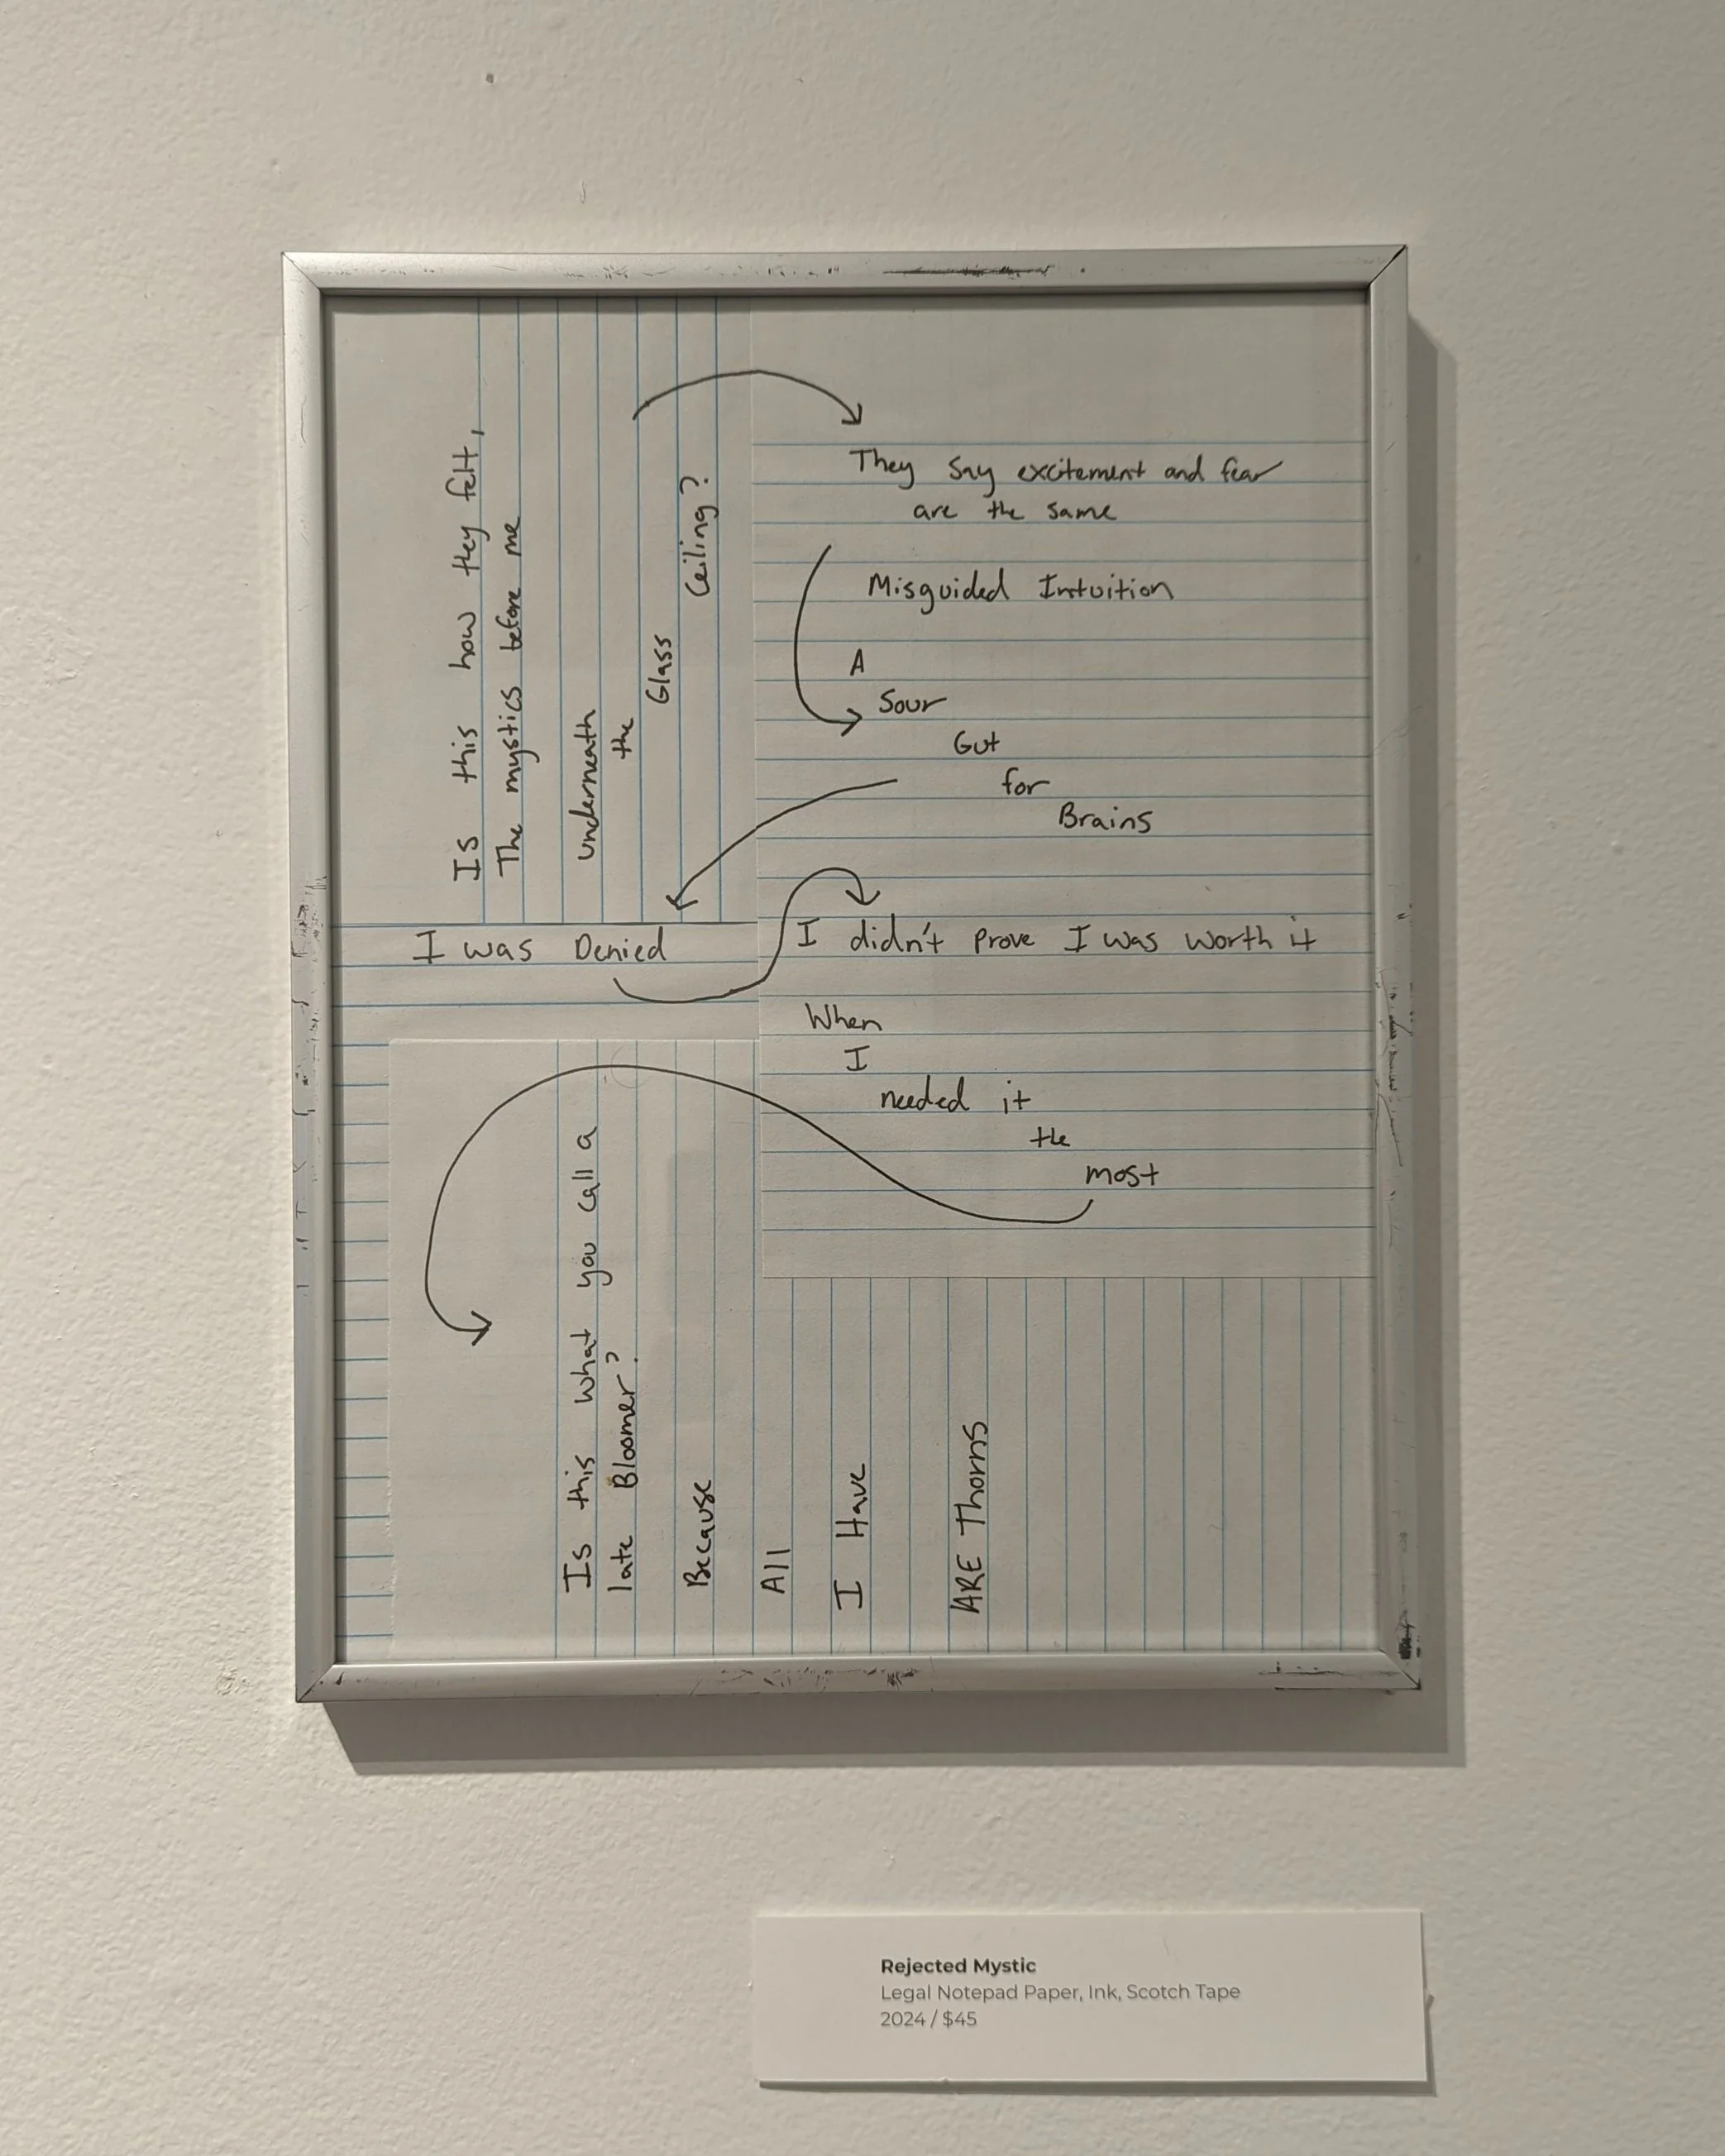 Is this how they felt,
The mystics before me
underneath
the
Glass
Ceiling?
They say excitement and fear
are the same
Misguided Intuition
A
Sour
Gut
for
Brains
I was Denied
I didn't prove I was worth it
When
I
needed it
the
most
Is this what you call a
late Bloomer?
Because
All
I Have
ARE Thorns
Rejected Mystic
Legal Notepad Paper, Ink, Scotch Tape
2024 / $45